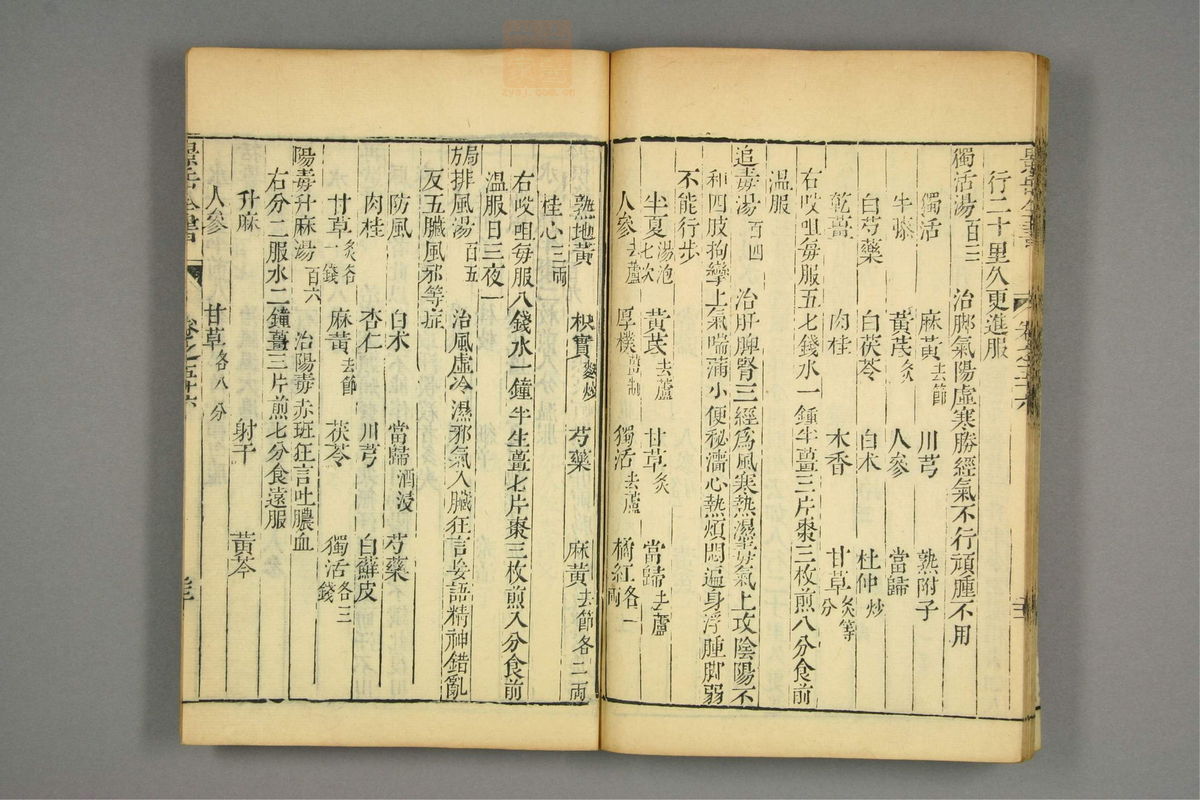 行二十里久更進服
獨活湯 百三 治脚氣陽虛寒勝經氣不行頑腫不用
獨活 麻黃去節 川芎 熟附子
牛膝 黃芪炙 人參 當歸
白芍藥 白茯苓 白朮 杜仲炒
乾薑 肉桂 木香 甘草炙等分
右㕮咀每服五七錢水一鍾半薑三片棗三枚煎八分食前
溫服
追毒湯 百四 治肝脾腎三經爲風寒熱濕毒氣上攻陰陽不
和四肢拘攣上氣喘滿小便秘濇心熱煩悶遍身浮腫脚弱
不能行步
半夏湯泡七次 黃芪去蘆 甘草炙 當歸去蘆
人參去蘆 厚樸薑制 獨活去蘆 橘紅各一兩
熟地黃 枳實麩炒 芍藥 麻黃去節各二兩
桂心三兩
右㕮咀每服八錢水一鐘半生薑七片棗三枚煎八分食前
溫服日三夜一
局方排風湯 百五 治風虛冷濕邪氣入臟狂言妄語精神錯亂
及五臟風邪等症
防風 白朮 當歸酒浸 芍藥
肉桂 杏仁 川芎 白蘚皮
甘草炙各一錢 麻黃去節 茯苓 獨活各三錢
陽毒升麻湯 百六 治陽毒赤班狂言吐膿血
右分二服水二鐘薑三片煎七分食遠服
升麻 射干 黃芩
人參 甘草各八分
景岳全書 卷之五十六